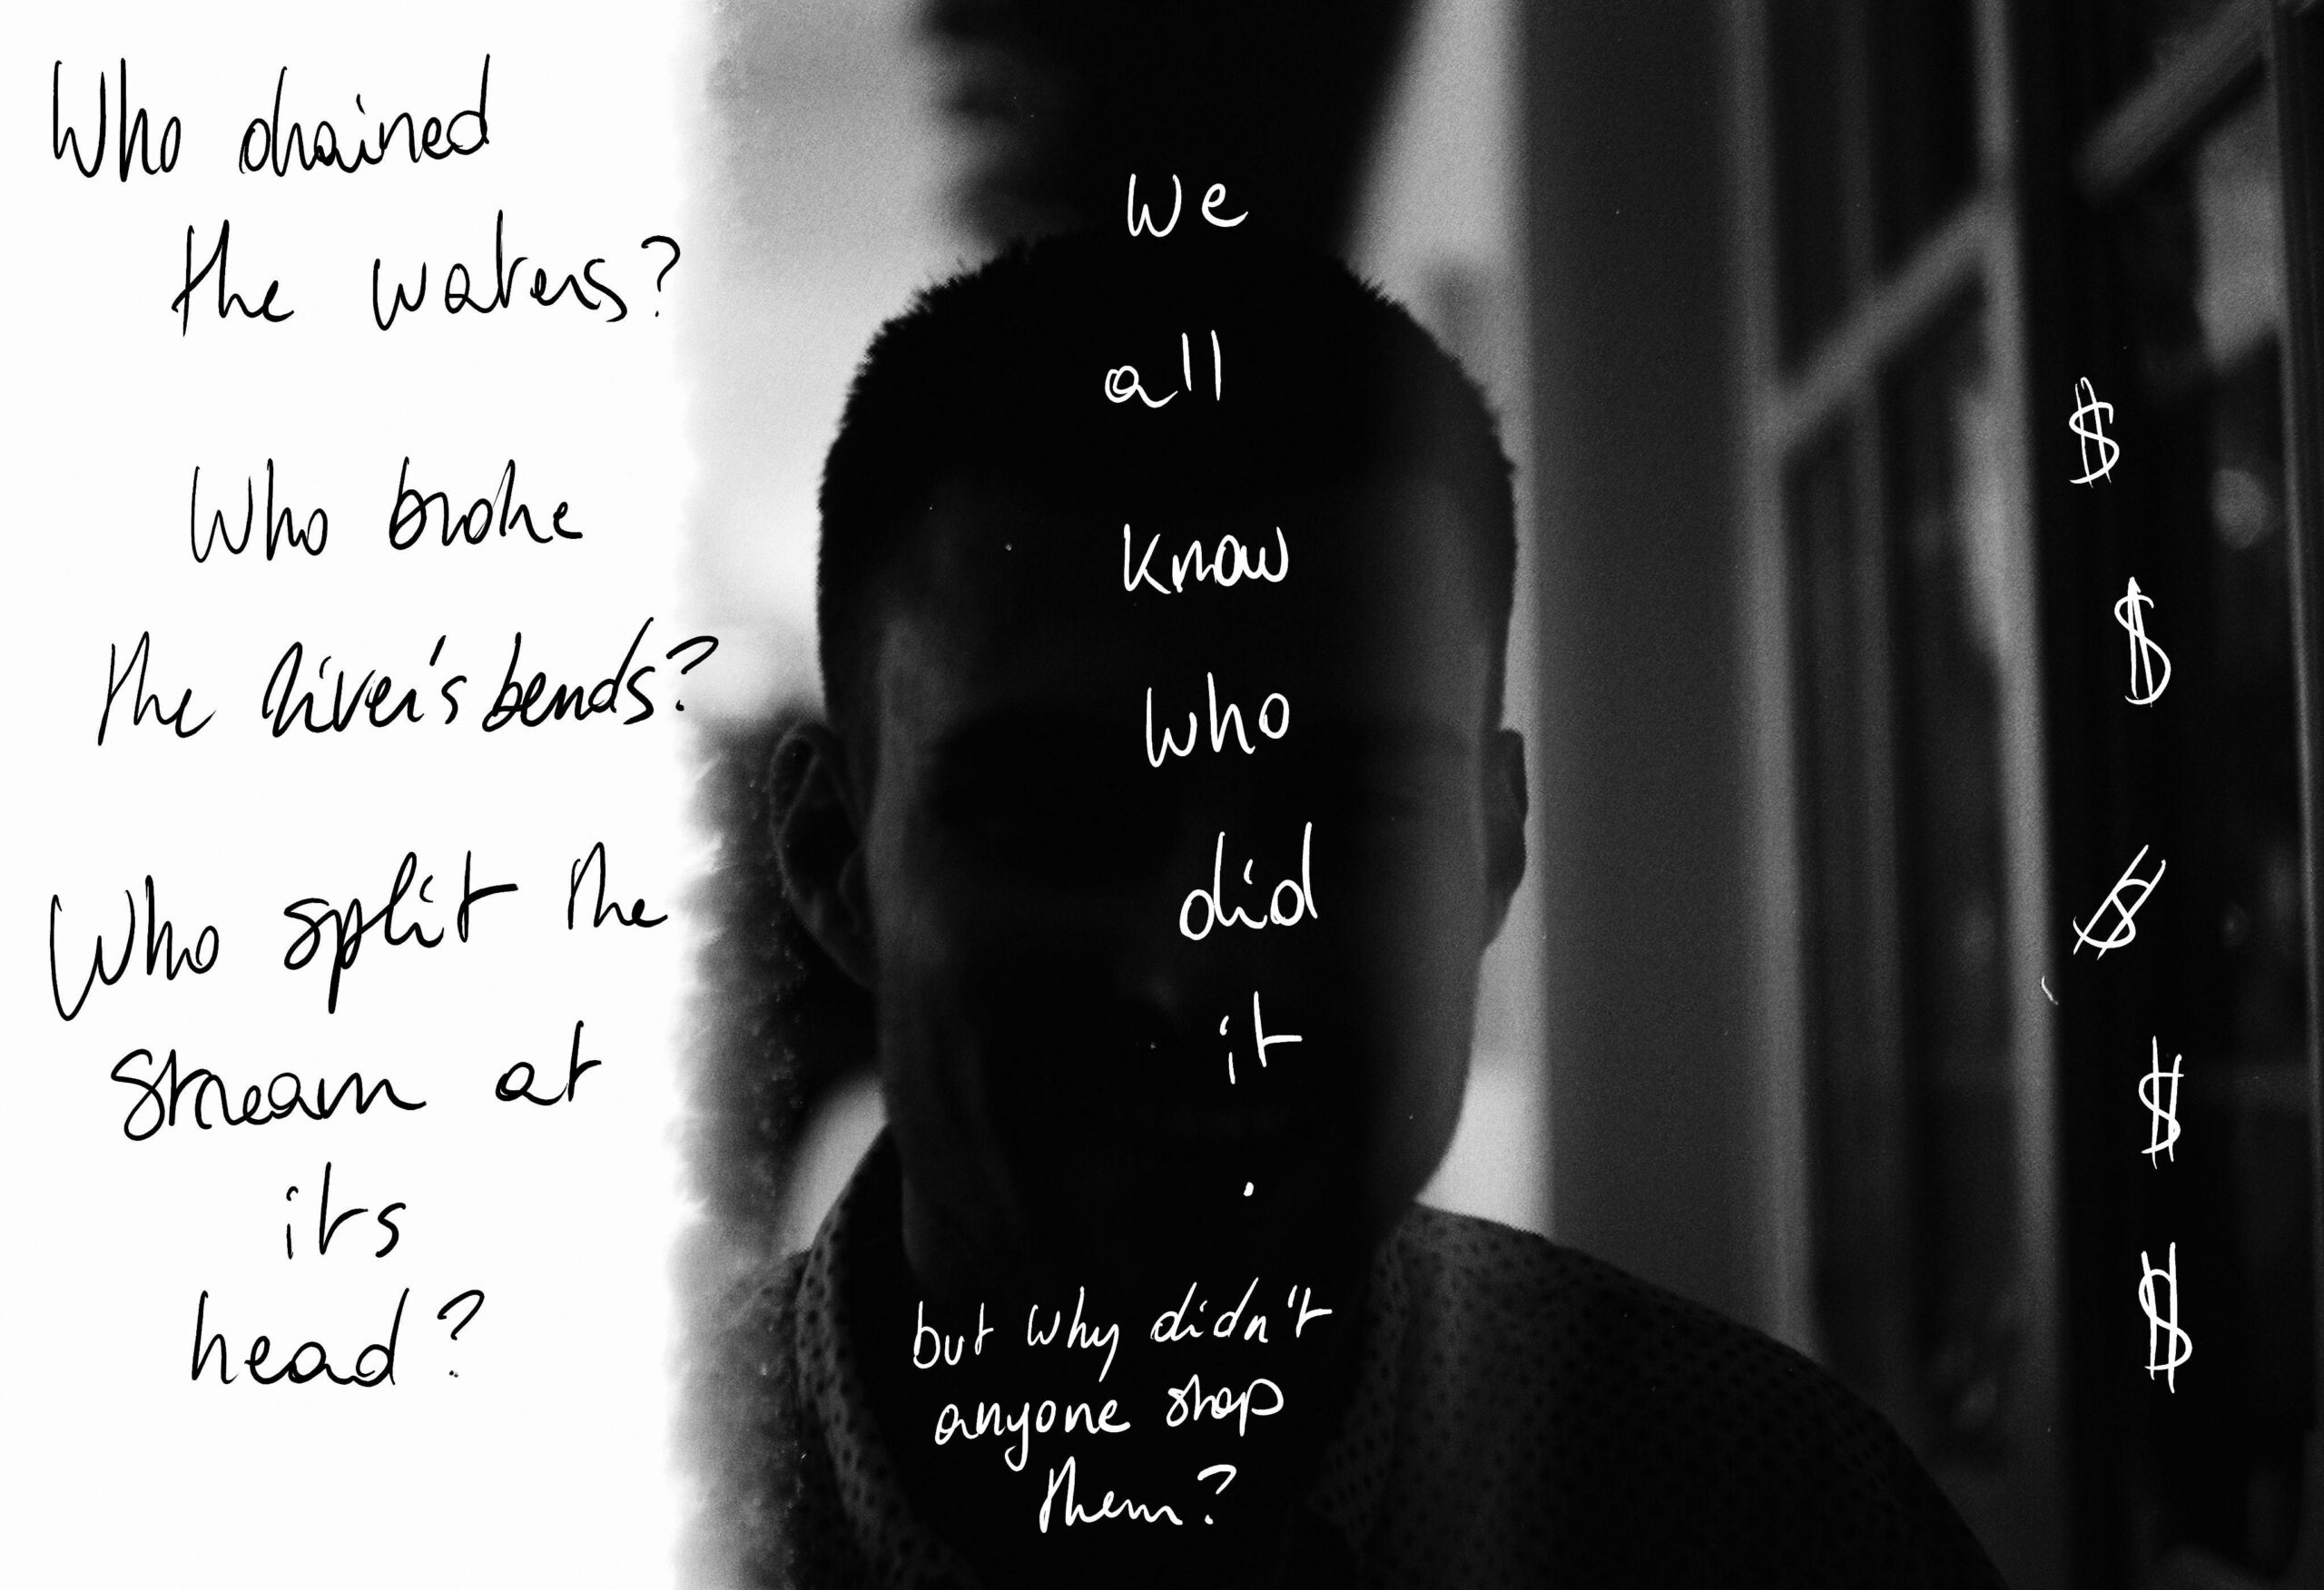 Who drained
the waters?
Who broke
the river's bends?
Who split the
stream at
its
head?
We
all
know
who
did
it
.
but why didn't
anyone stop
them?
$
$
$
$
$